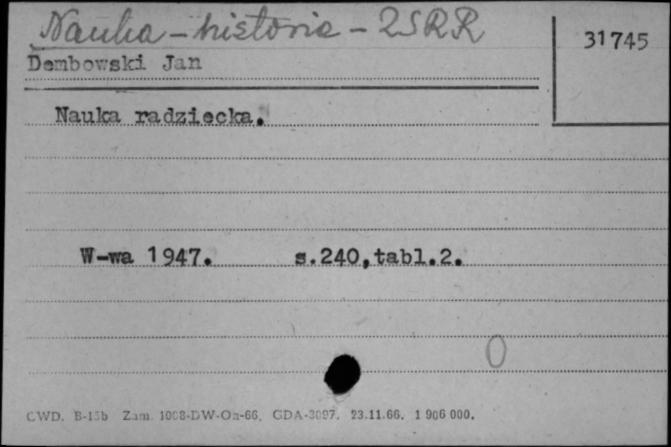 Nauka - historia - ZSRR
31745
Dembowski Jan
Nauka radziecka.
W-wa 1947. s.240,tabl.2.
0
CWD. B-15b Zam. 1008-DW-On-66. GDA-3097. 23.11.66. 1 906 000.